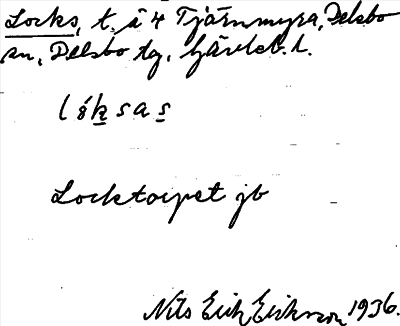 Locks, t. å 4 Tjärnmyra, Delsbo
sn, Delsbo tg, Gävleb. l.
lóksas
Locktorpet jb
Nils Erik Eriksson 1936.